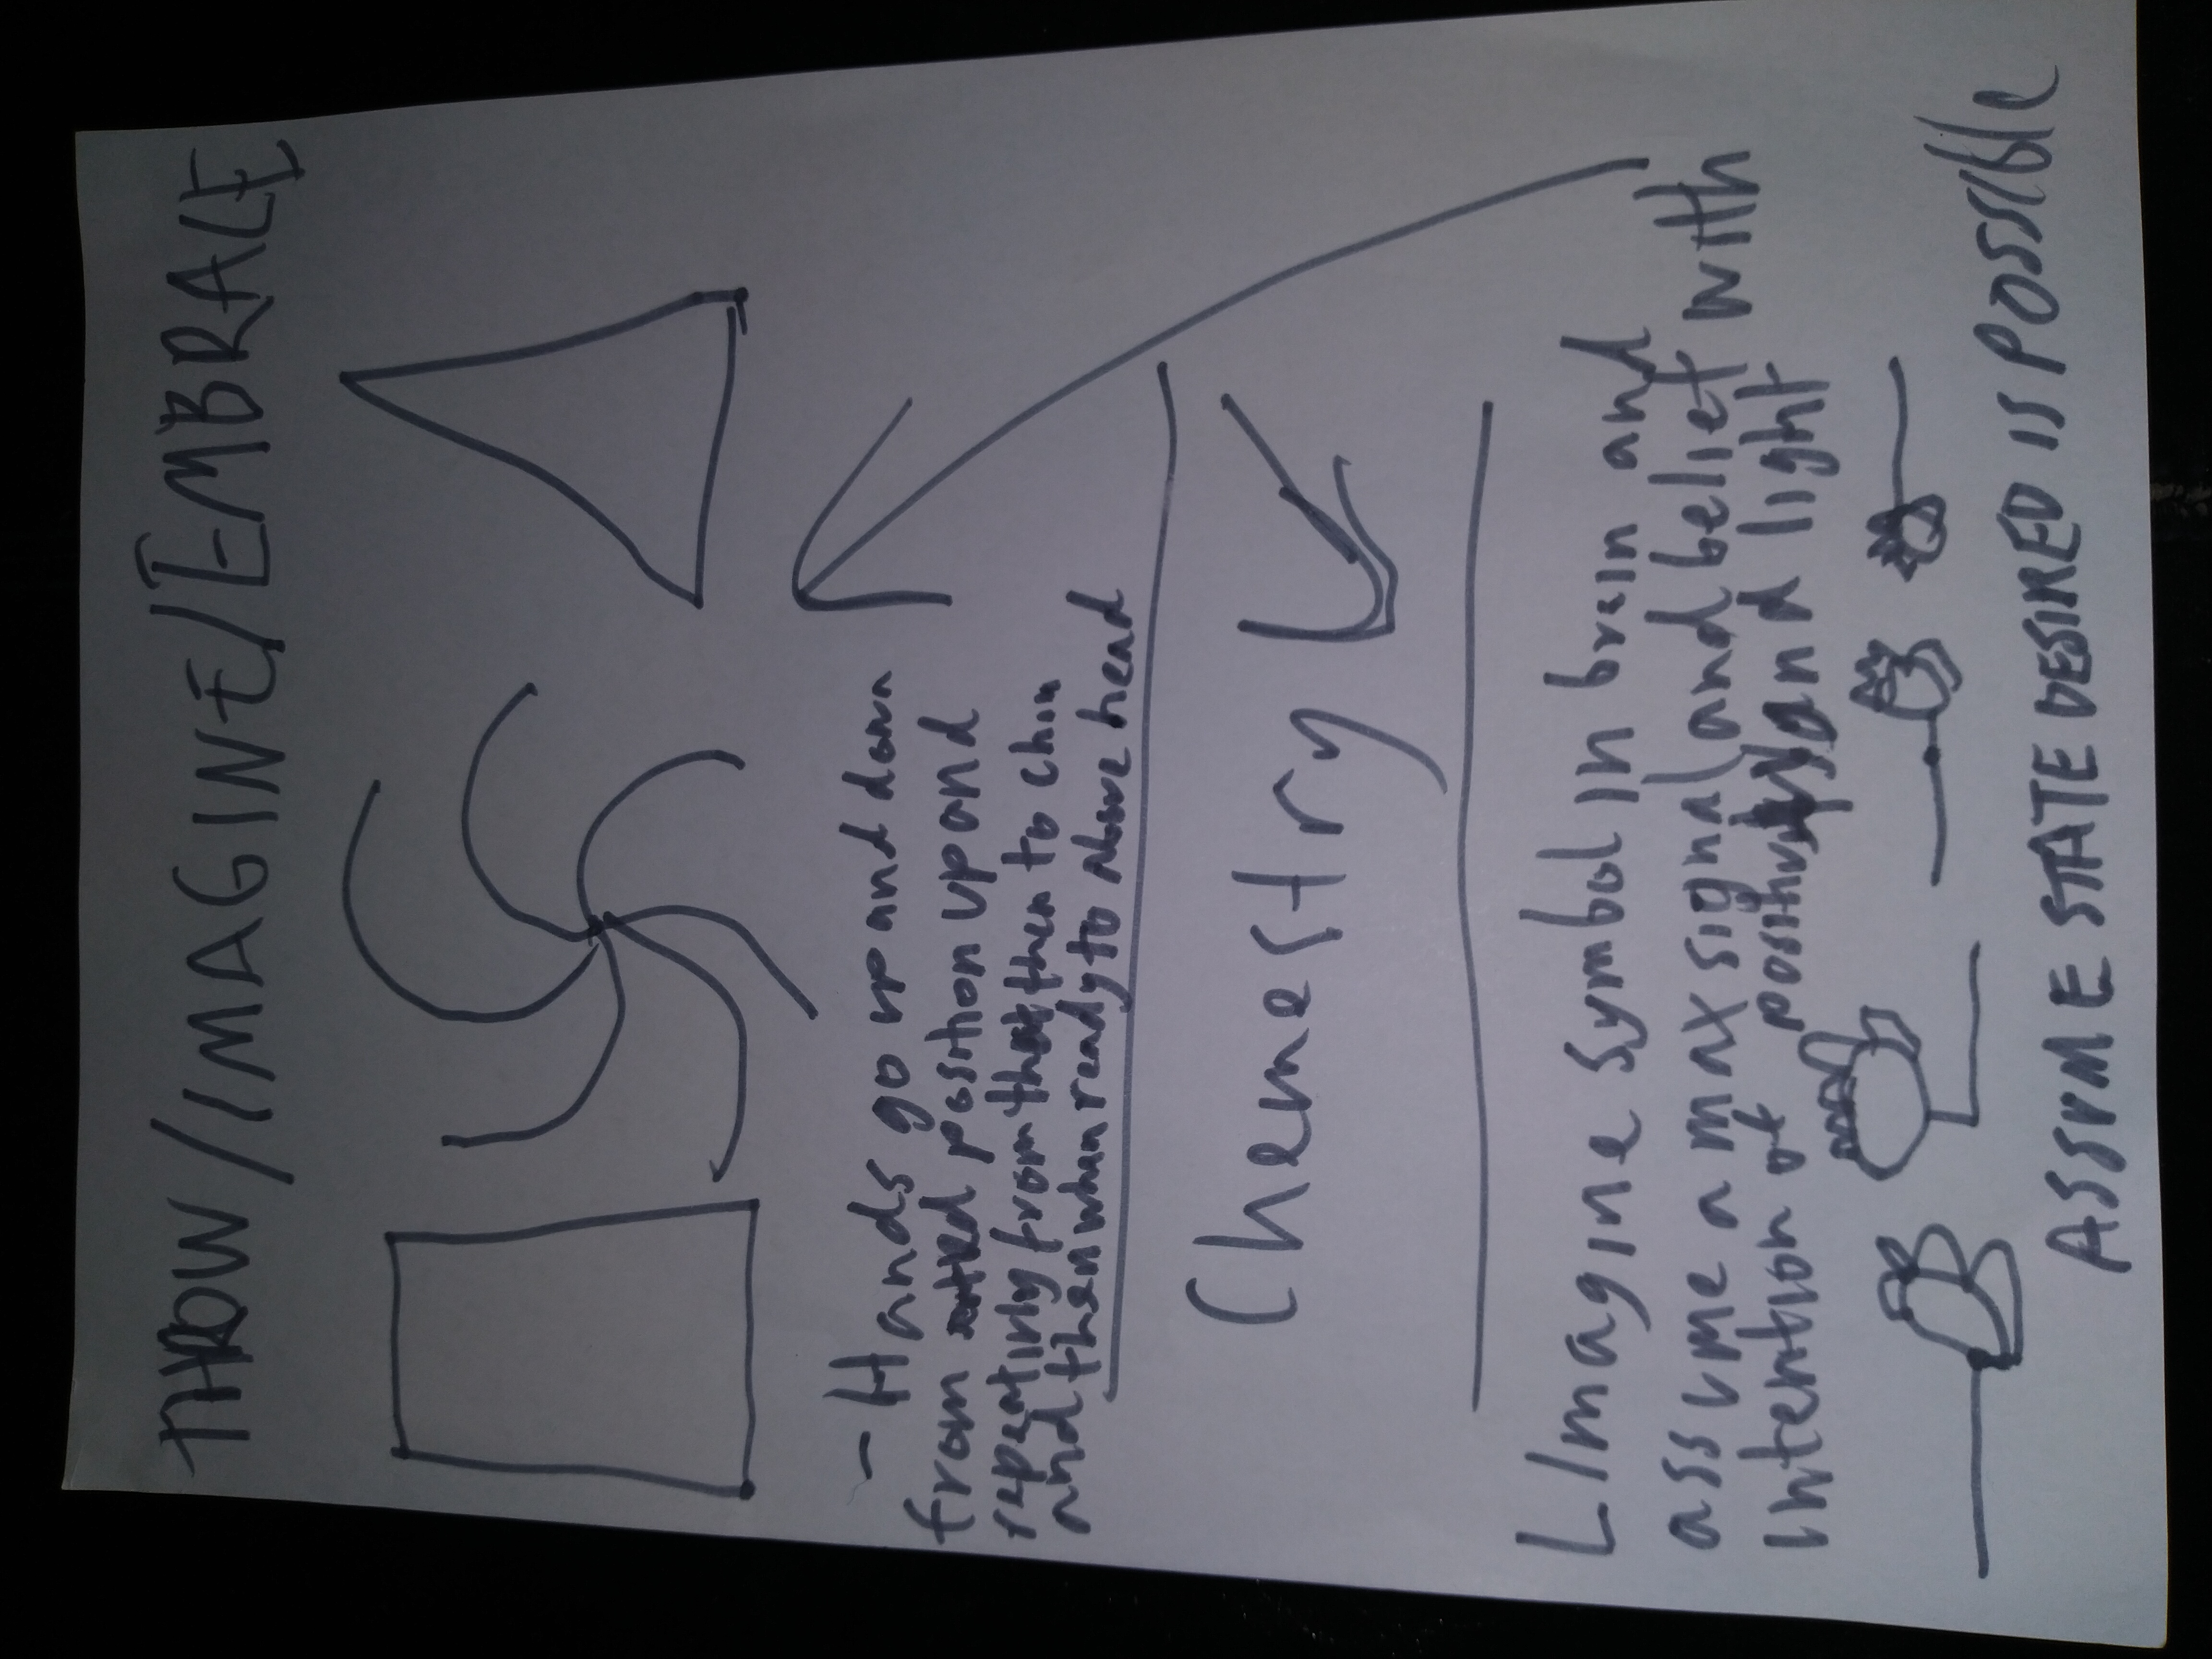 THROW/IMAGINE/EMBRACE
- Hands go up and down
from position up and
repeatinly from that then to chin
and then when ready to above head
Chemestry
Imagine symbol in brain and
assume a max signal and belief with
intention of positivity and light
ASSUME STATE DESIRED IS POSSIBLE